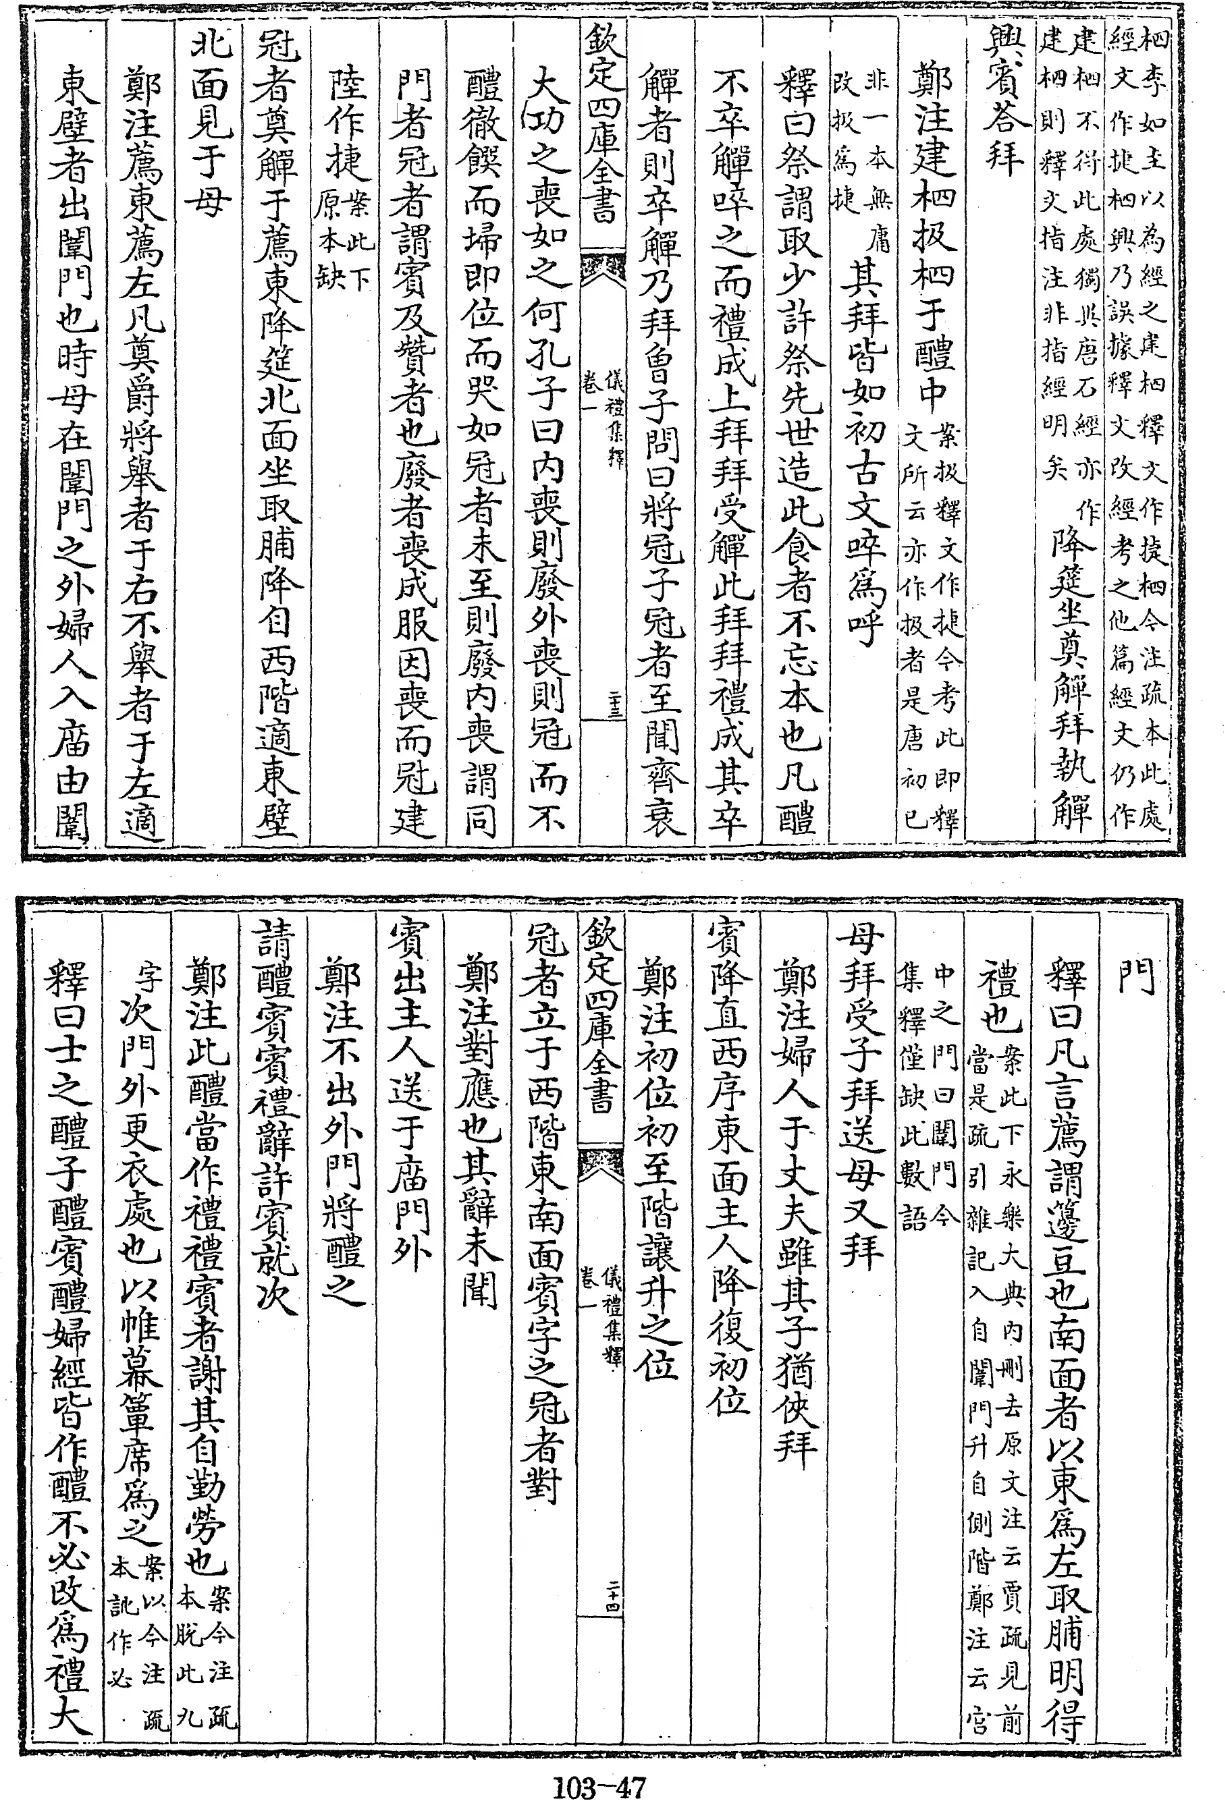 柶李如圭以為經之建柶釋文作捷柶今注疏本此處
經文作捷柶興乃誤據釋文改經考之他篇經文仍作
建柶不得此處獨異唐石經亦作
建柶則釋文指注非指經明矣
降筵坐奠觶拜執觶
興賓荅拜
鄭注建柶扱柶于醴中
案扱釋文作捷今考此即釋
文所云亦作扱者是唐初已
非一本無庸
改扱爲捷
其拜皆如初古文啐爲呼
釋曰祭謂取少許祭先世造此食者不忘本也凡醴
不卒觶啐之而禮成上拜拜受觶此拜拜禮成其卒
觶者則卒觶乃拜曾子問曰將冠子冠者至聞齊衰
欽定四庫全書
儀禮集釋
卷一
二十三
大功之喪如之何孔子曰内喪則廢外喪則冠而不
醴徹饌而埽即位而哭如冠者未至則廢内喪謂同
門者冠者謂賓及贊者也廢者喪成服因喪而冠建
陸作捷
案此下
原本缺
冠者奠觶于薦東降筵北面坐取脯降自西階適東壁
北面見于母
鄭注薦東薦左凡奠爵將舉者于右不舉者于左適
東壁者出闈門也時母在闈門之外婦人入庿由闈
門
釋曰凡言薦謂籩豆也南面者以東爲左取脯明得
禮也
案此下永樂大典内刪去原文注云賈疏見前
當是疏引雜記入自闈門升自側階鄭注云宫
中之門曰闈門今
集釋僅缺此數語
母拜受子拜送母又拜
鄭注婦人于丈夫雖其子猶俠拜
賓降直西序東面主人降復初位
鄭注初位初至階讓升之位
欽定四庫全書
儀禮集釋
卷一
二十四
冠者立于西階東南面賓字之冠者對
鄭注對應也其辭未聞
賓出主人送于庿門外
鄭注不出外門將醴之
請醴賓賓禮辭許賓就次
鄭注此醴當作禮禮賓者謝其自勤勞也
案今注疏
本脱此九
字
次門外更衣處也以帷幕簞席爲之
案以今注疏
本訛作必
釋曰士之醴子醴賓醴婦經皆作醴不必改爲禮大
103-47